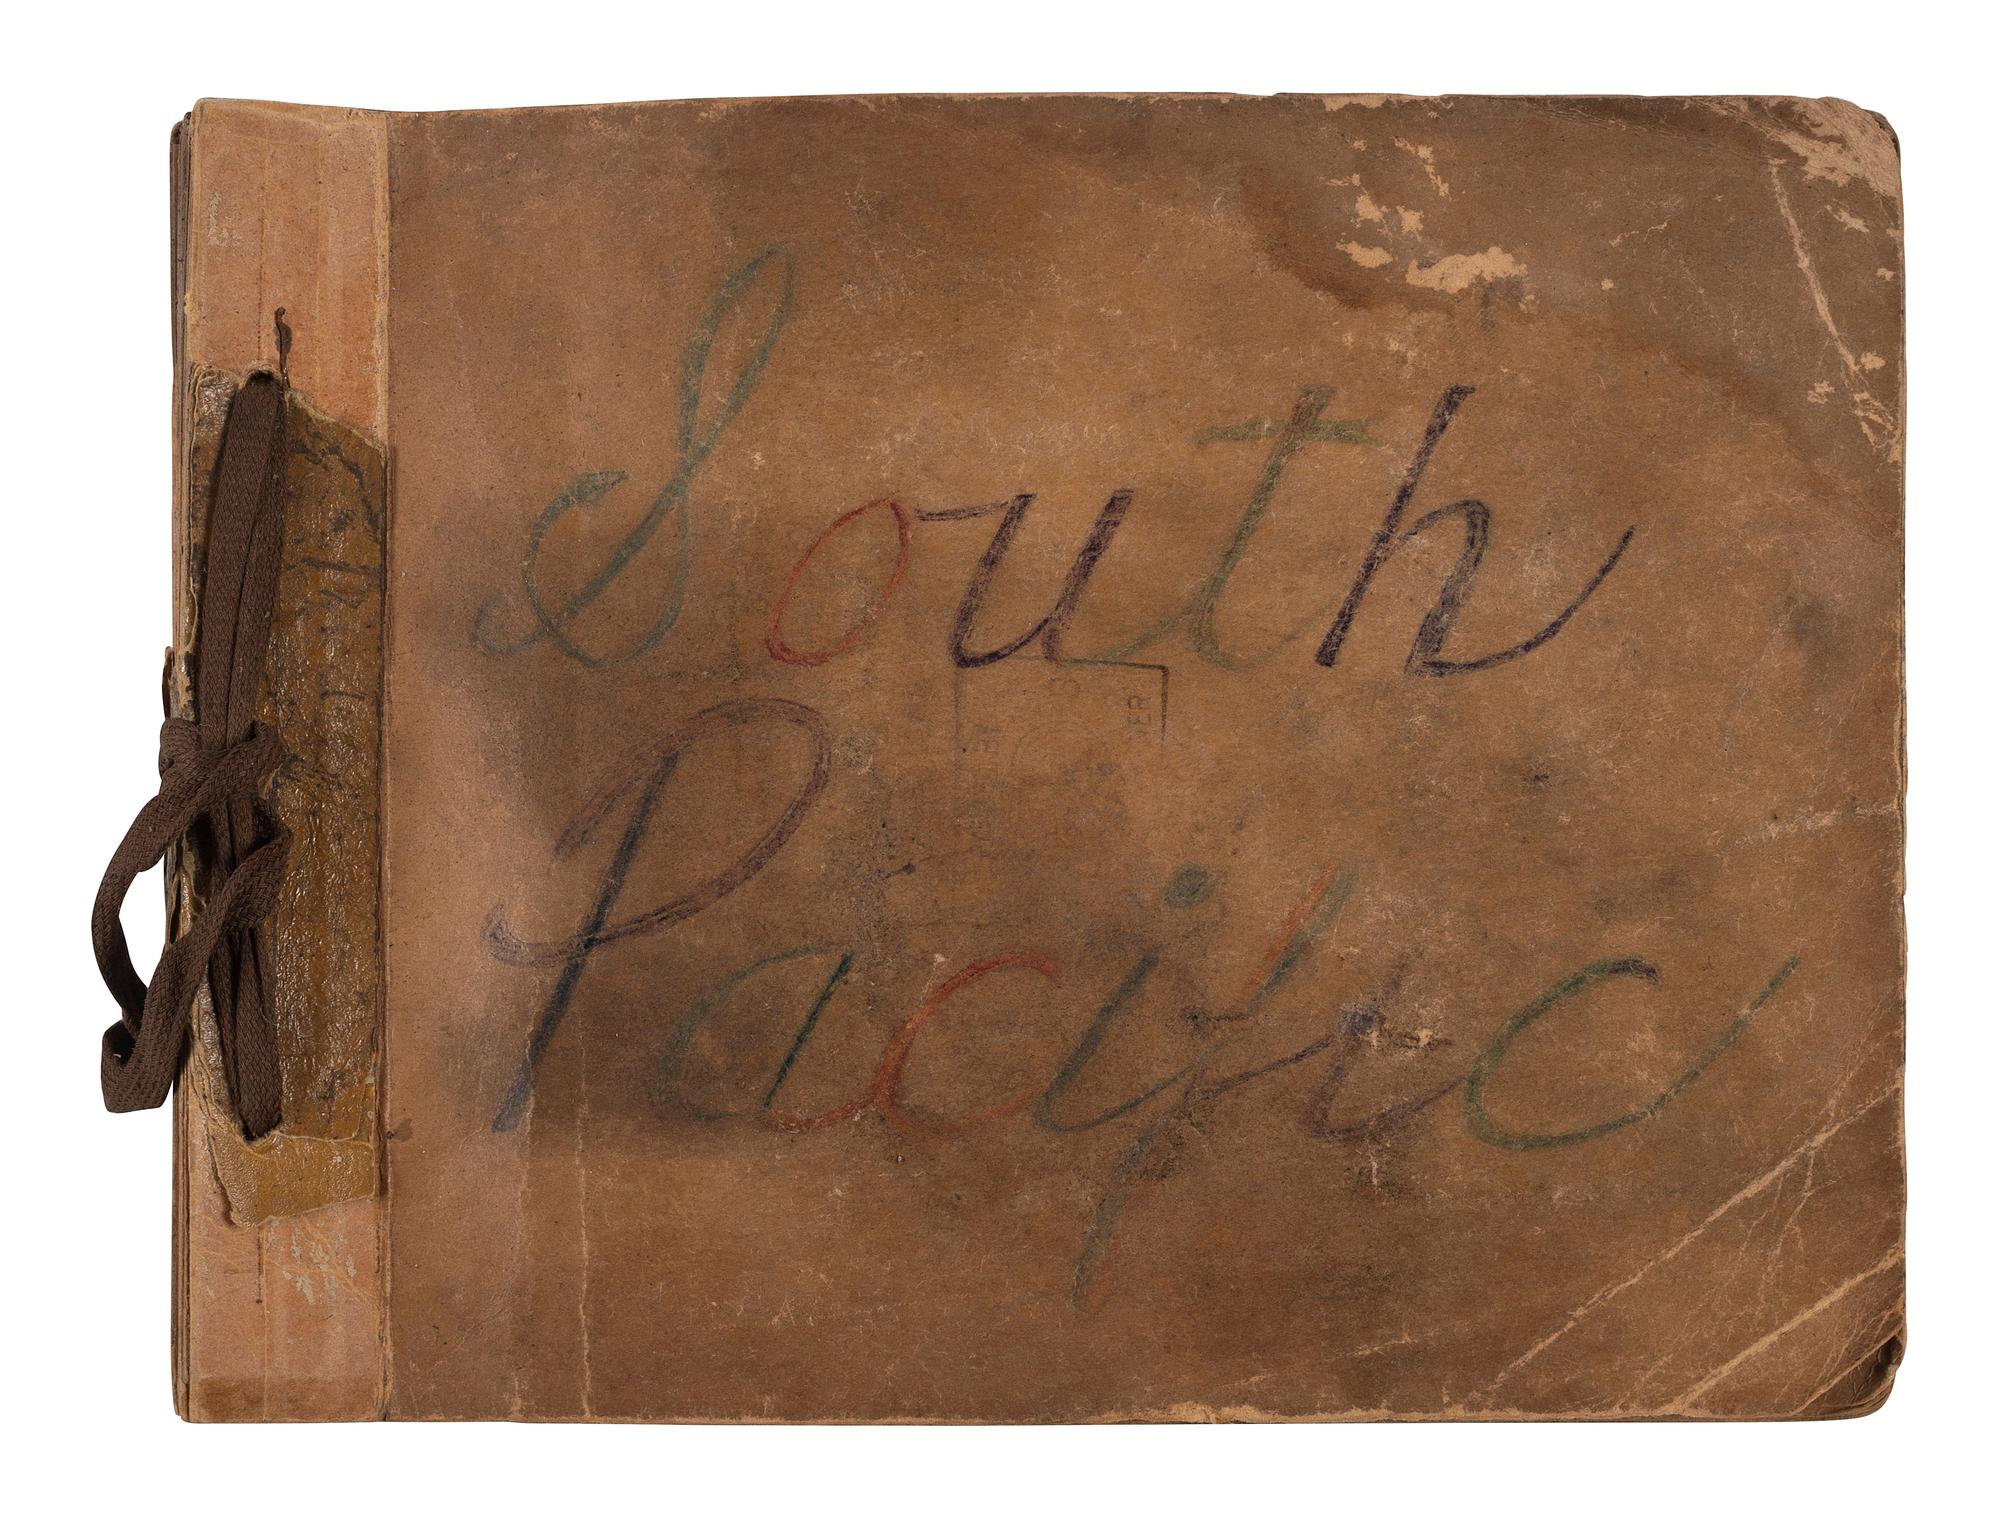 South
Pacific